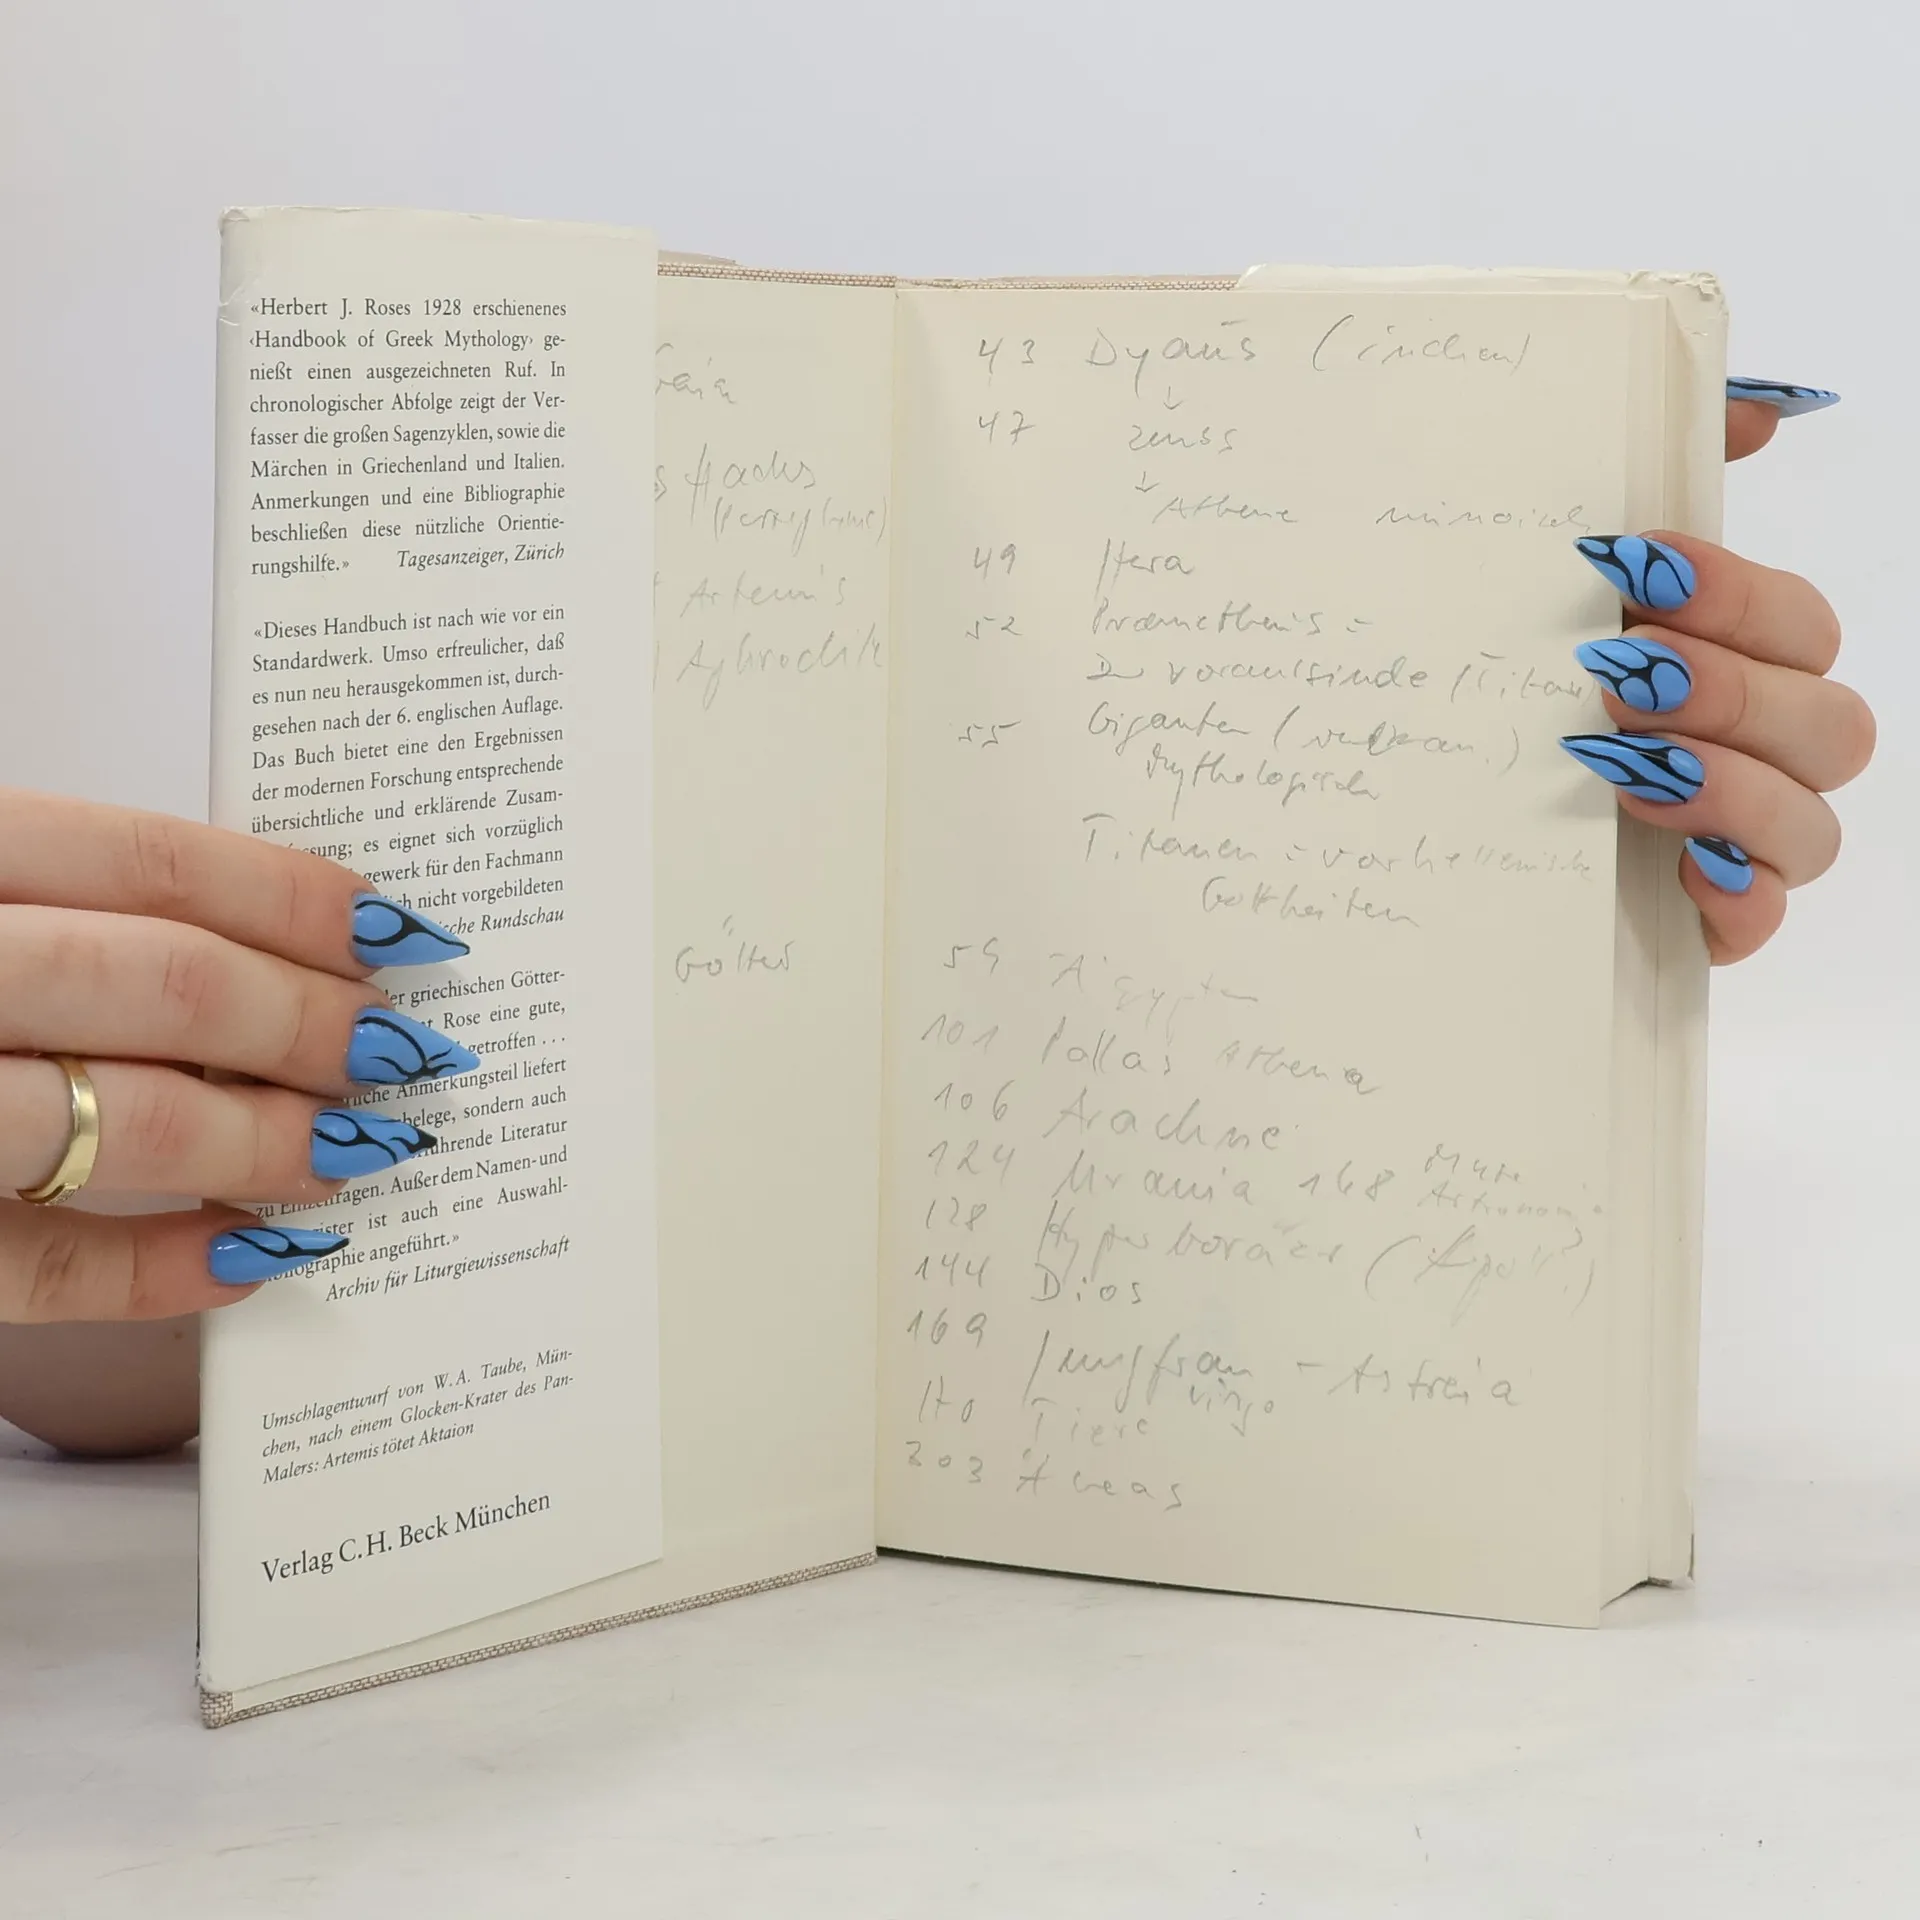 «Herbert J. Roses 1928 erschienenes
‹Handbook of Greek Mythology› ge-
nießt einen ausgezeichneten Ruf. In
chronologischer Abfolge zeigt der Ver-
fasser die großen Sagenzyklen, sowie die
Märchen in Griechenland und Italien.
Anmerkungen und eine Bibliographie
beschließen diese nützliche Orientie-
rungshilfe.» Tagesanzeiger, Zürich
«Dieses Handbuch ist nach wie vor ein
Standardwerk. Umso erfreulicher, daß
es nun neu herausgekommen ist, durch-
gesehen nach der 6. englischen Auflage.
Das Buch bietet eine den Ergebnissen
der modernen Forschung entsprechende
übersichtliche und erklärende Zusam-
sung; es eignet sich vorzüglich
gewerk für den Fachmann
nicht vorgebildeten
Rundschau
griechischen Götter-
Rose eine gute,
getroffen . . .
Anmerkungsteil liefert
belege, sondern auch
Literatur
zu Außer dem Namen- und
ist auch eine Auswahl-
angeführt.»
Archiv für Liturgiewissenschaft
Umschlagentwurf von W. A. Taube, Mün-
chen, nach einem Glocken-Krater des Pan-
Malers: Artemis tötet Aktaion
Verlag C.H. Beck München
Hades
Artemis
Aphrodite
Götter
43 Dyaus (indien)
↓
47 Zeus
↓
Athene minoisch
49 Hera
52 Prometheus =
(Titan)
55 Giganten
Mythologisch
Titanen = vorhellenische
Gottheiten
59 Ägypten
101 Pallas Athena
106 Arachne
124 Urania 168 Muse
Astronomie
128 Hyperboräer
144 Dios
169 Jungfrau - Astreia
Virgo
170 Tiere
303 Äneas